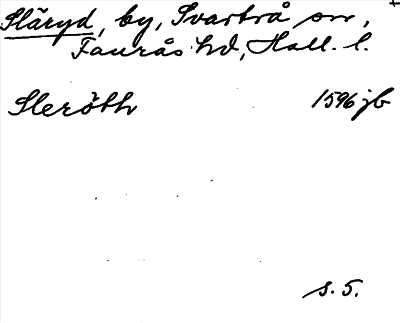 Släryd, by, Svartrå sn,
Faurås hd, Hall. l.
Sleröth 1596 jb
s. 5.